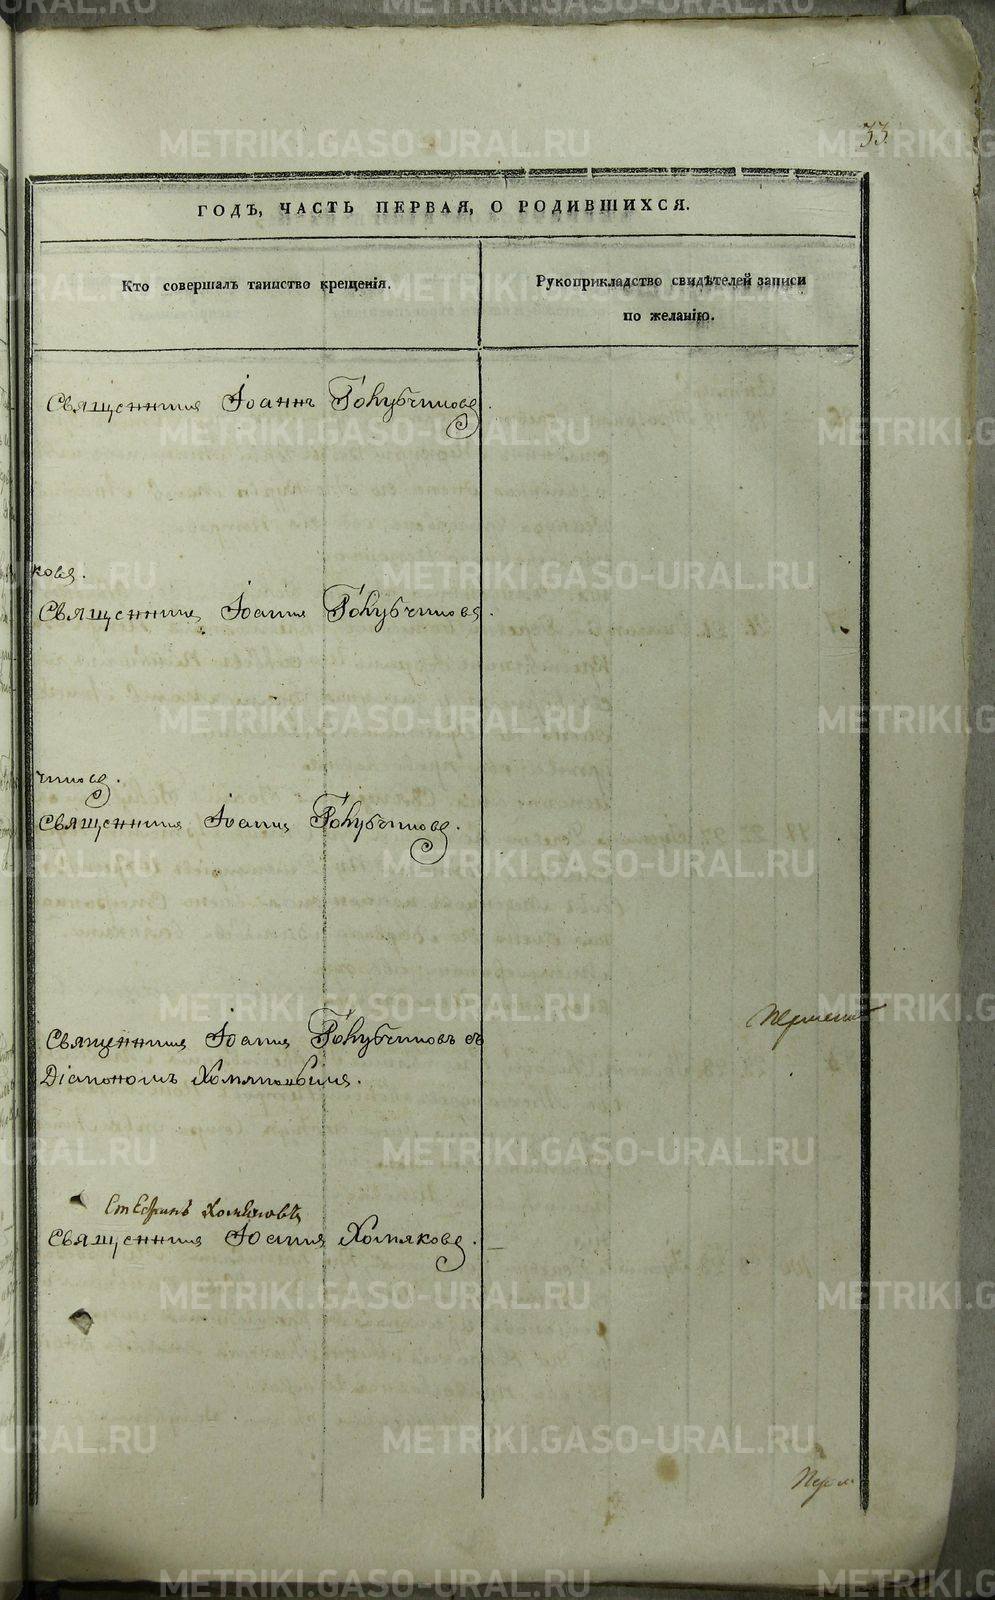 33
ГОДЪ, ЧАСТЬ ПЕРВАЯ, О РОДИВШИХСЯ.
Кто совершалъ таинство крещенія.
Рукоприкладство свидѣтелей записи
по желанію.
Священникъ Іоаннъ Голубчиковъ.
ковъ.
Священникъ Іоаннъ Голубчиковъ.
чиковъ.
Священникъ Іоаннъ Голубчиковъ.
Священникъ Іоаннъ Голубчиковъ съ
Діакономъ Хомяковымъ.
Стефанъ Хомяковъ
Священникъ Іоаннъ Хомяковъ.
METRIKI.GASO-URAL.RU